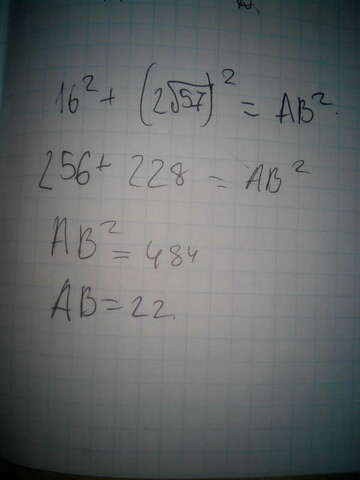 16² + (2√57)² = AB².
256 + 228 = AB²
AB² = 484
AB = 22.